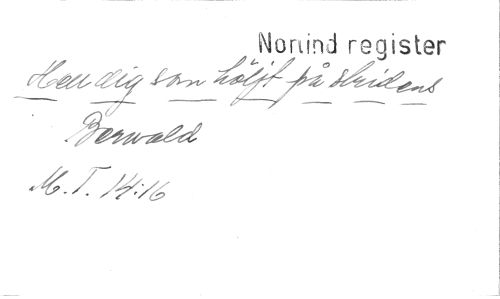 Nonind register
Hell dig som höljt på stridens
Berwald
M.T. 14:16